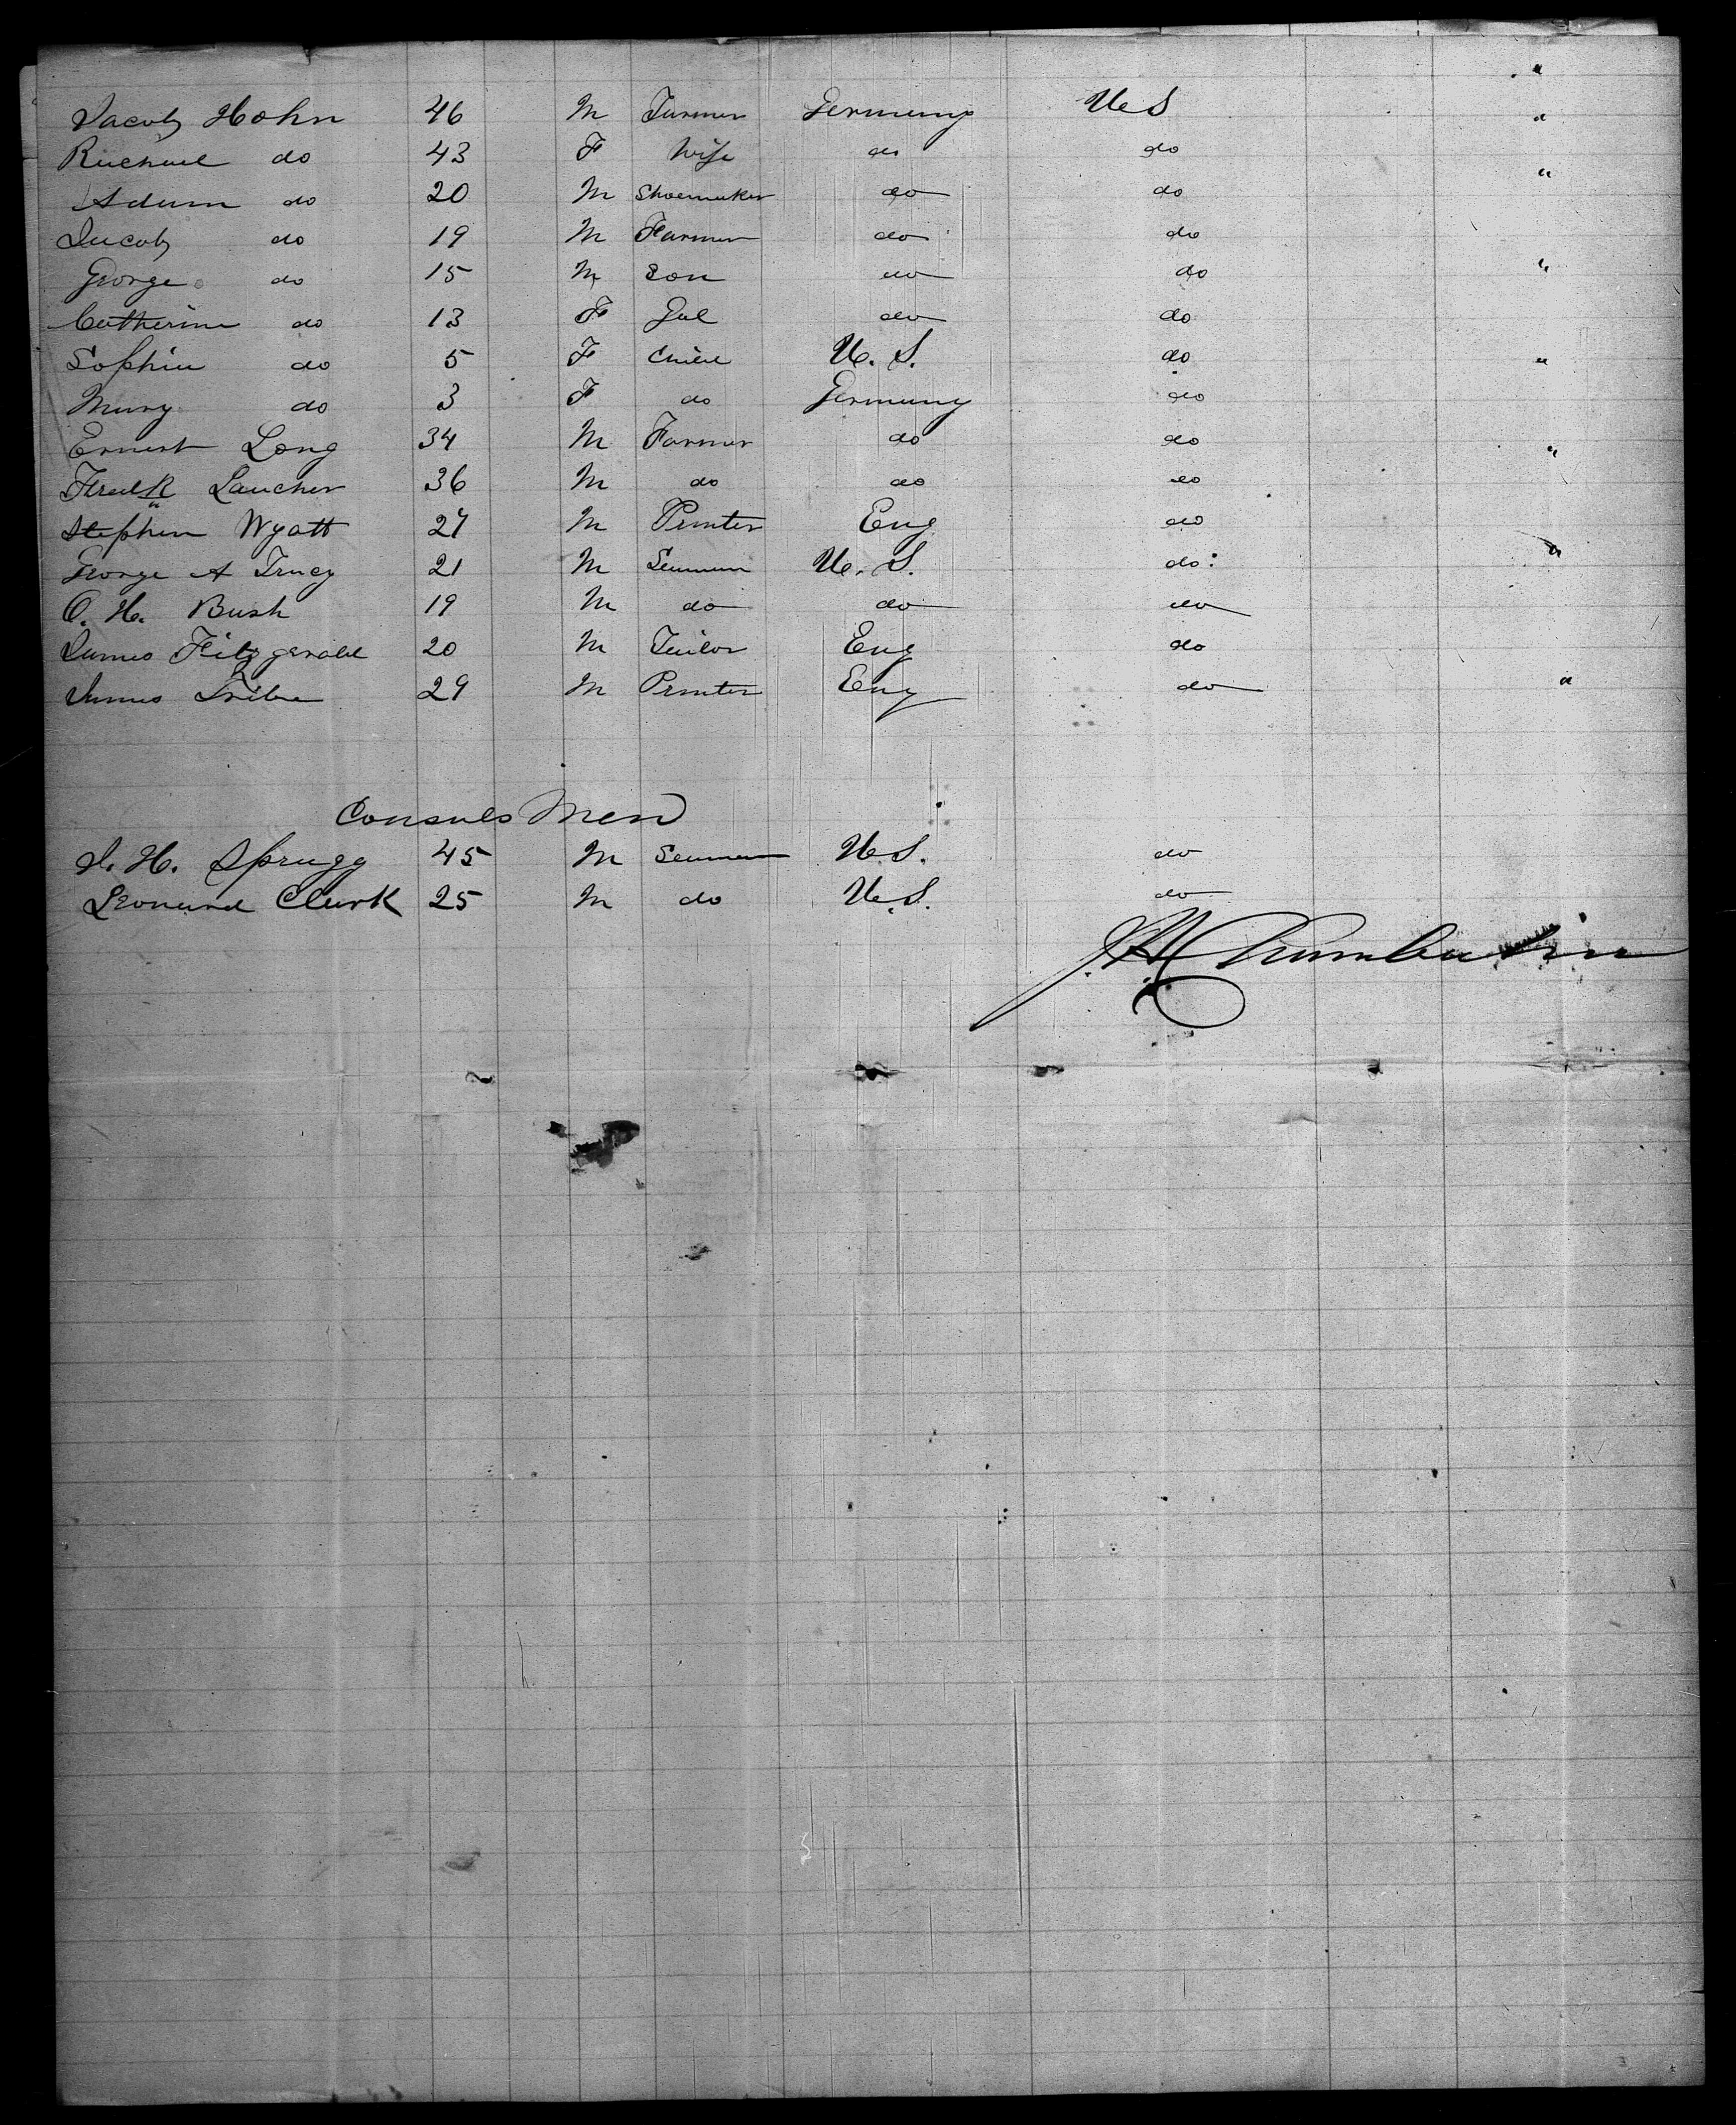 "
Jacob Hohn 46 M Farmer Germany U S "
Rachael do 43 F Wife do do
Adam do 20 M Shoemaker do do "
Jacob do 19 M Farmer do do
George do 15 M Son do do "
Catherine do 13 F Gal do do
Sophia do 5 F Child U. S. do "
Mary do 3 F do Germany do
Ernest Long 34 M Farmer do do "
Fredk Laucher 36 M do do do
Stephen Wyatt 27 M Printer Eng do
George A Tracy 21 M Seaman U. S. do "
O. H. Bush 19 M do do do
James Fitzgerald 20 M Tailor Eng do
James Tribe 29 M Printer Eng do "
Consuls Men
J. H. Spragg 45 M Seaman U S. do
Leonard Clark 25 M do U. S. do
J. H. Chamberlin